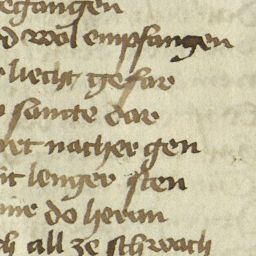 egangen
d wol empfangen
liecht gefar
sancte dar
ret nacher gen
it lenger sten
me do heran
ch all ze schwach